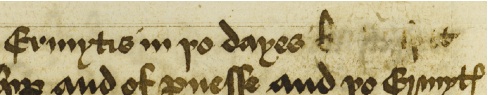 Ermytis in þo dayes
and of pnesse and þo Ermyt